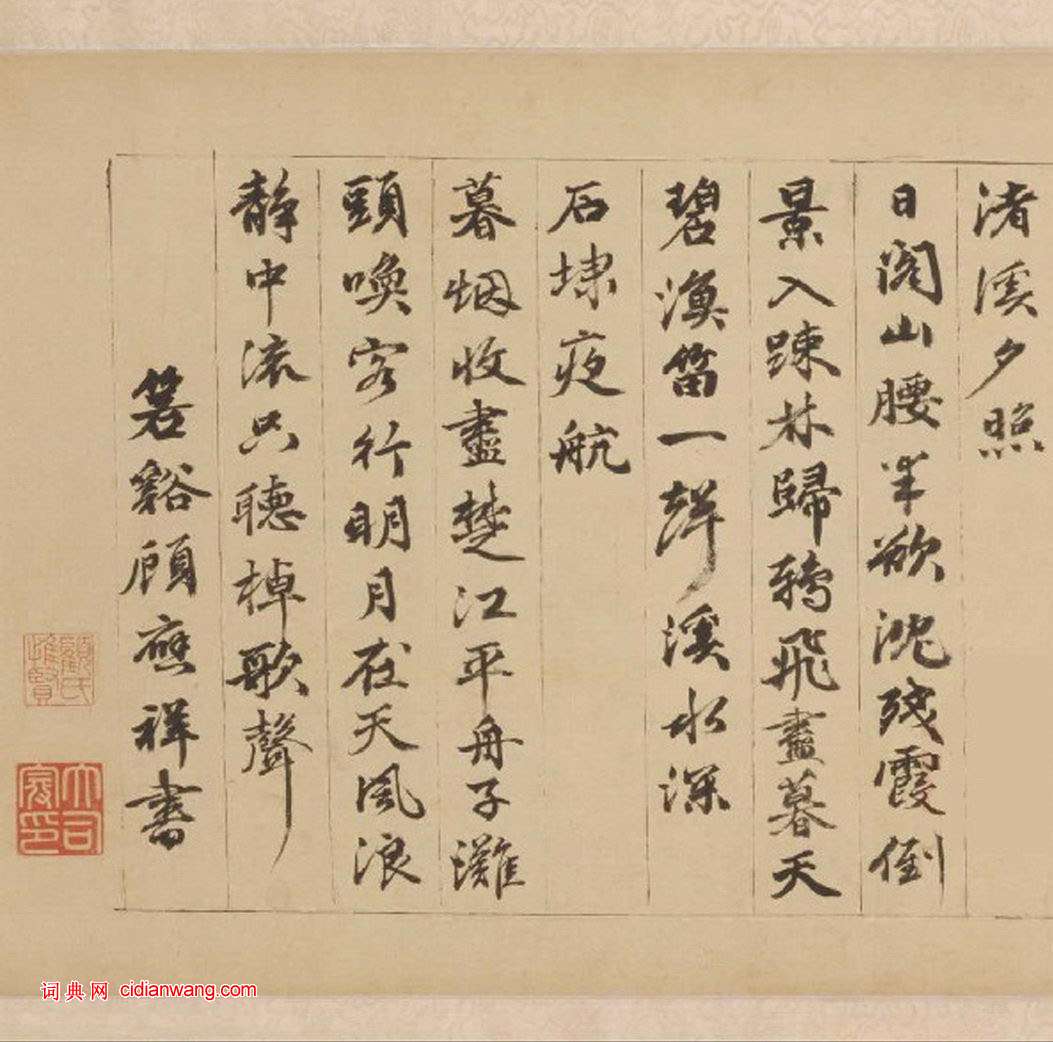 渚溪夕照
日閣山腰半欲沈殘霞倒
景入踈林歸鴉飛盡暮天
碧漁笛一聲溪水深
石埭夜航
暮烟收盡楚江平舟子灘
頭喚客行明月在天風浪
静中流只聽棹歌聲
箬谿顧應祥書
顧氏惟賢
大司寇印
词典网 cidianwang.com